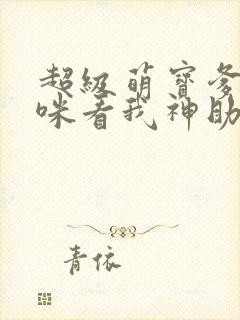 超级萌宝爹
咪看我神助
青依